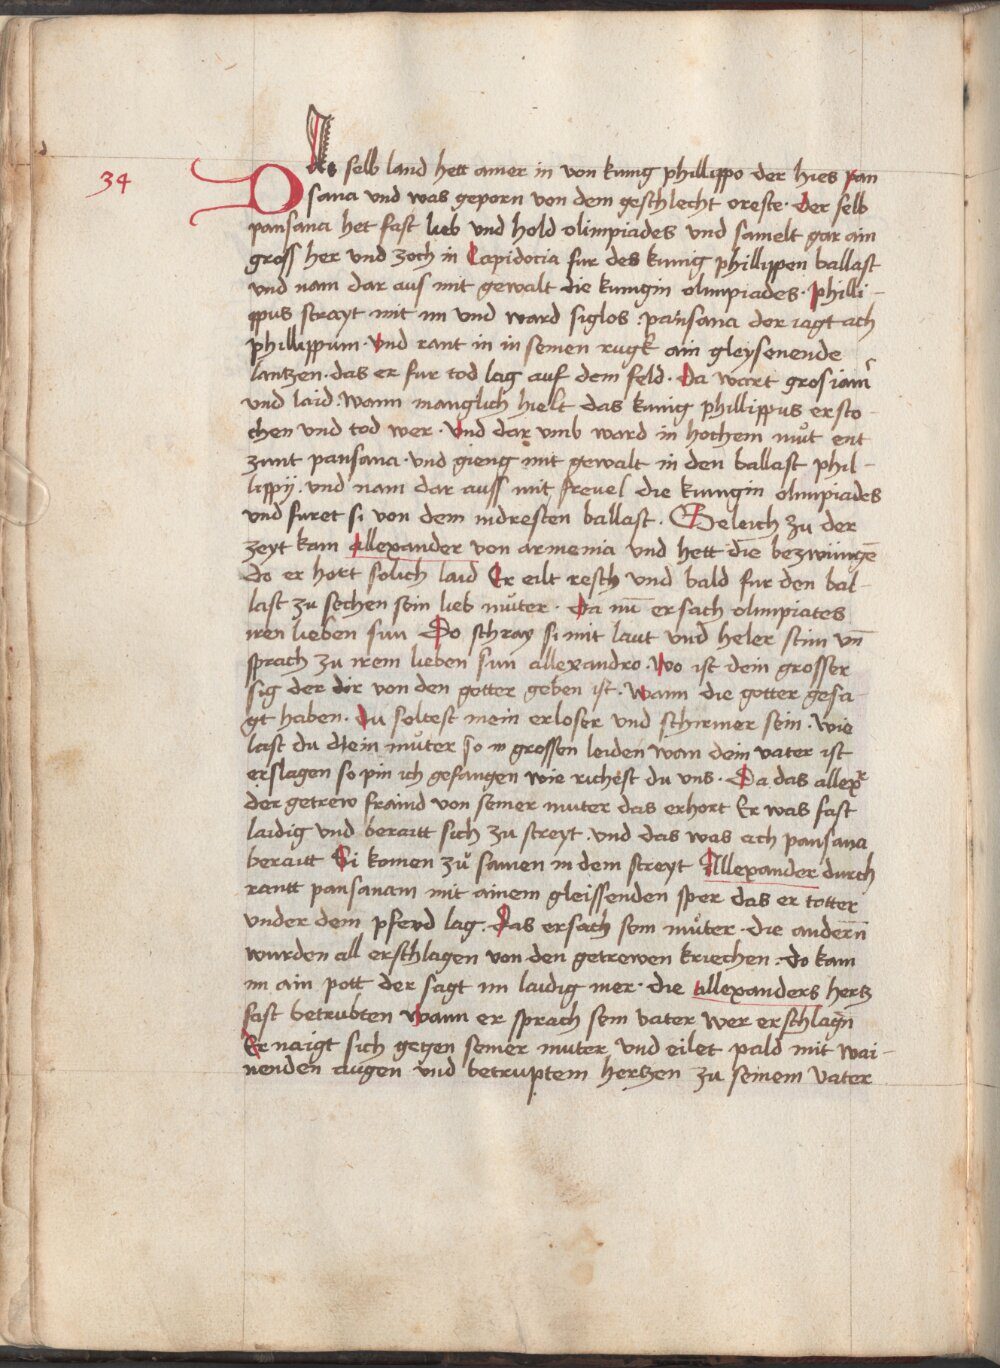 34
DAs selb land hett ainer in von kunig phillippo der hies pan
sana und was geporn von dem geschlecht oreste · Der selb
pansana het fast lieb und hold olimpiades und samelt gar ain
gross her und zoch in Capidocia fur des kunig phillippen ballast
und nam dar aus mit gewalt die kunigin olimpiades · philli-
ppus strayt mit im und ward siglos · pansana der iagt ach
phillippum · Und rant in in seinen rugk ain gleysenende
lantzen · das er fur tod lag auf dem feld · Da wart gros iam̄
und laid · wann manglich hielt das kunig phillippus ersto-
chen und tod wer · Und dar umb ward in hochem můt ent
zunt pansana · und gieng mit gewalt in den ballast phil-
lippij · und nam dar auss mit freuel die kunigin olimpiades
und furet si von dem indresten ballast · Geleich zu der
zeyt kam allexander von armenia und hett die bezwungē
do er hort solich laid Er eilt resch und bald fur den bal-
last zu sechen sein lieb můter · Da nū ersach olimpiates
iren lieben sun Do schray si mit laut und heler stim vn̄
sprach zu irem lieben sun allexandro · wo ist dein grosser
sig der dir von den gotter geben ist · Wann die gotter gesa-
gt haben · Du soltest mein erloser und schirmer sein · Wie
last du dein můter so in grossen leiden wan dein vater ist
erslagen so pin ich gefangen wie richest du uns · Da das allexr
der getrew fraind von seiner muter das erhort Er was fast
laidig und beraitt sich zu streyt · und das was ach pansana
beraitt Si komen zů samen in dem streyt Allexander durch
rantt pansanam mit ainem gleissenden sper das er totter
under dem pferd lag · Das ersach sein můter · die anderñ
wurden all erschlagen von den getrewen kriechen · do kam
im ain pott der sagt im laidig mer · die allexanders hertz
fast betrubten Wann er sprach sein vater wer erschlagn̄
Er naigt sich gegen seiner muter und eilet pald mit wai-
nenden augen und betruptem hertzen zu seinem vater